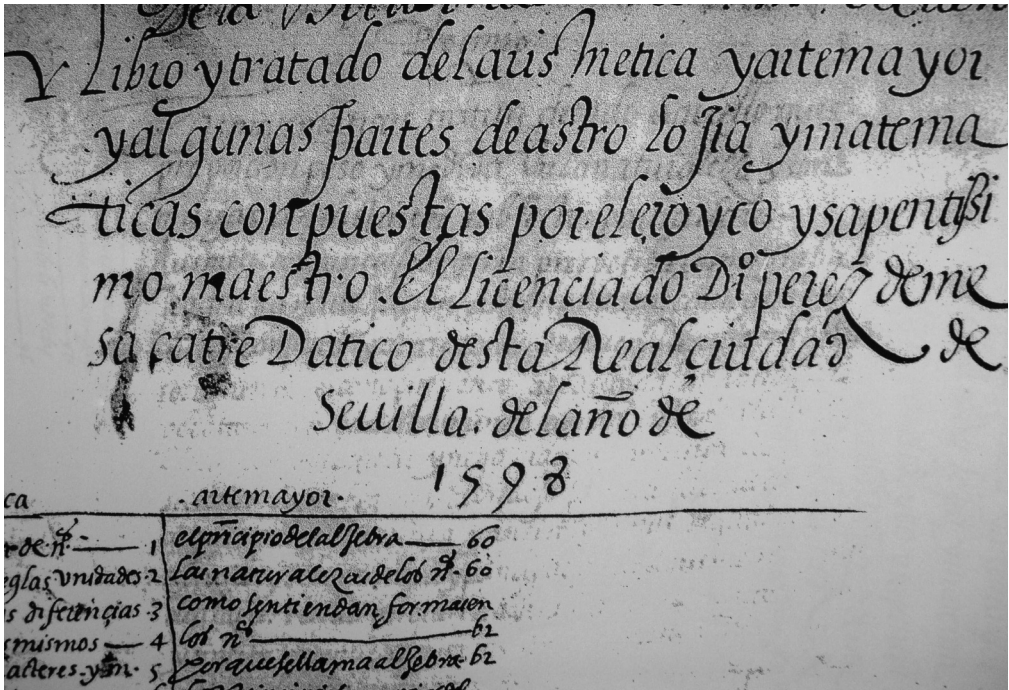 Libro y tratado del arismetica y arte mayor
y algunas partes de astrolojia y matema
ticas conpuestas por el eroyco y sapentissi
mo maestro. El Licenciado Dio perez de me
sa catreDatico desta Real çiudad de
Sevilla. del año de
1598
ca
.arte mayor.
de nos 1
el prñcipio del algebra 60
eglas vnidades. 2
Las naturalezas de los nos. 60
s diferençias. 3
como se entiendan y formacen
smismos 4
los nos 62
acteres. y 5
porque se llama algebra. 62